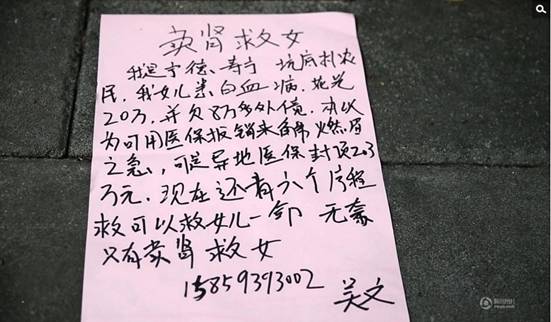 卖肾救女
我是宁德、寿宁 坑底村农
民,我女儿患白血病.花光
20万,并欠8万多外债.本以
为可用医保报销来备席燃眉
之急,可是异地医保封顶2.3
万元.现在还有六个疗程
救可以救女儿一命 无奈
只有卖肾救女
15859393002 吴文